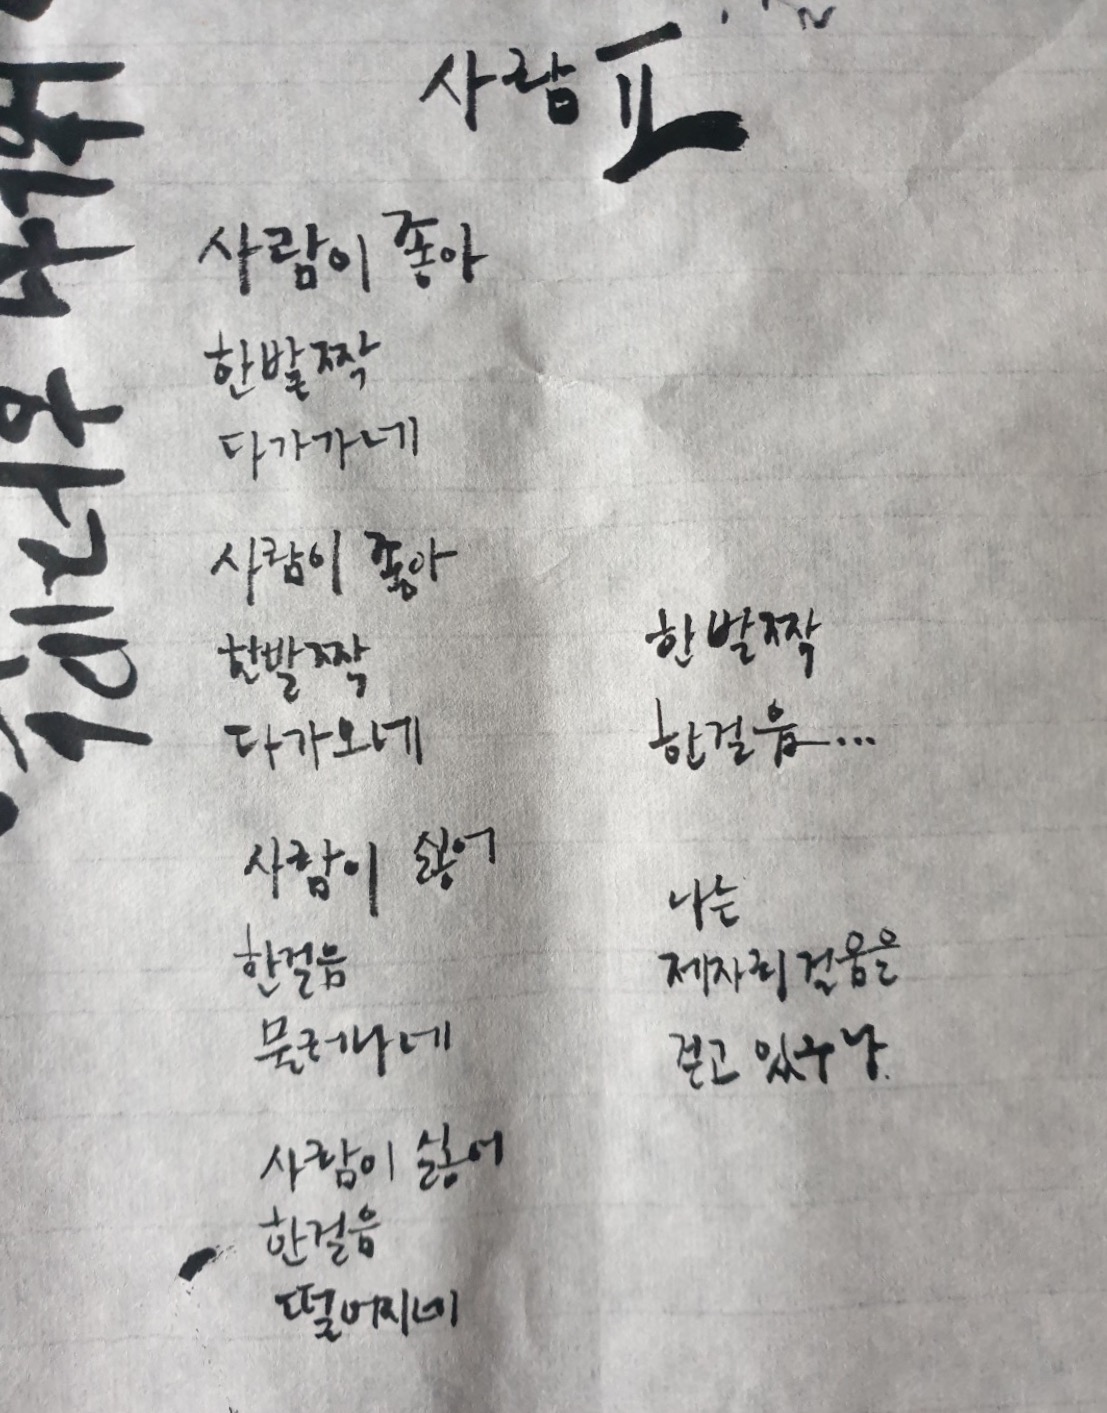 사람 II
사람이 좋아
한발짝
다가가네
사람이 좋아
한발짝
다가오네
사람이 싫어
한걸음
물러나네
사람이 싫어
한걸음
떨어지네
한발짝
한걸음...
나는
제자리걸음을
걷고 있구나.